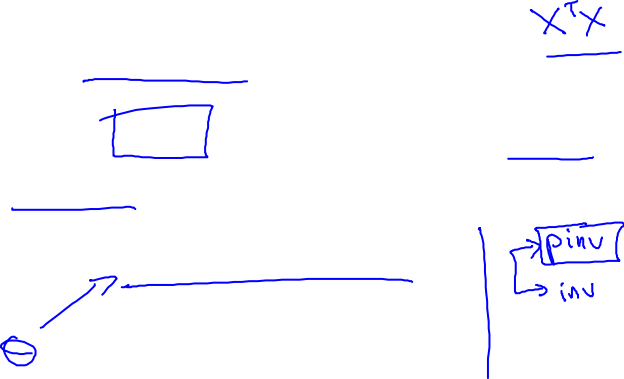 XᵀX
pinv
inv